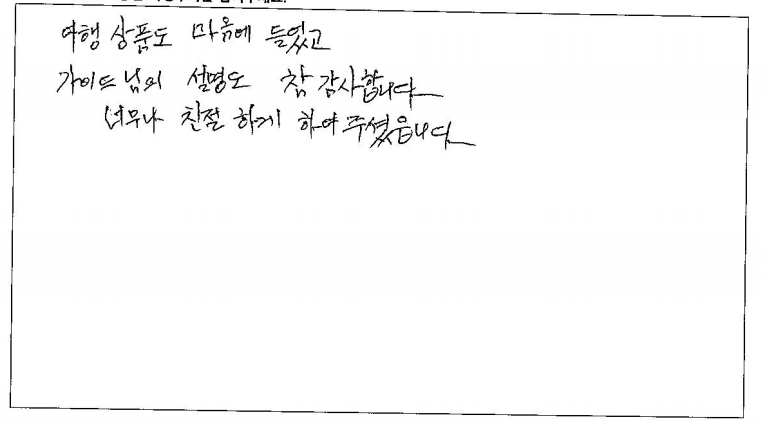 여행 상품도 마음에 들었고
가이드님의 설명도 참 감사합니다
너무나 친절하게 하여 주셨읍니다